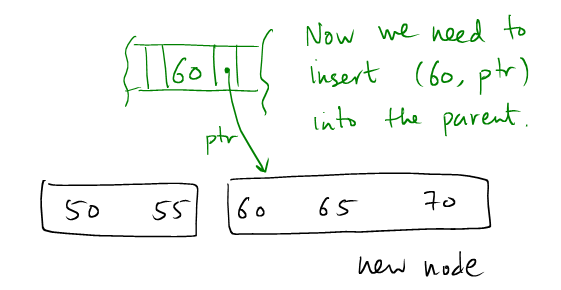 60
Now we need to
insert (60, ptr)
into the parent.
ptr
50 55
60 65 70
new node